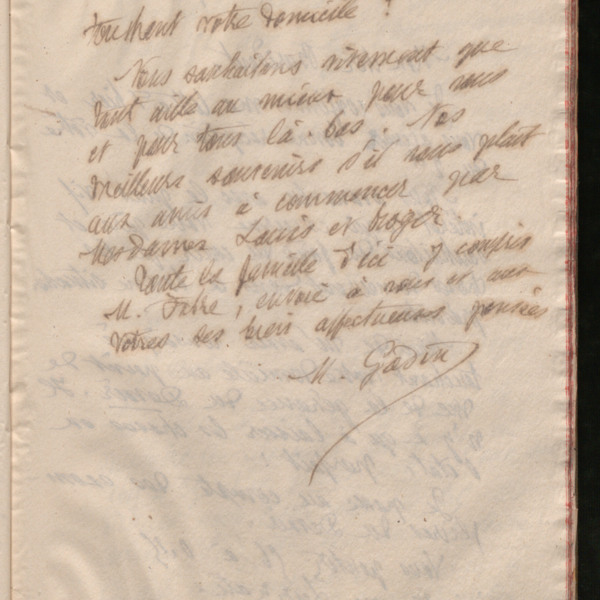 touchant votre domicile ?
Nous souhaitons vivement que
tout aille au mieux pour vous
et pour tous là-bas. Nos
meilleurs souvenirs s'il vous plaît
aux amis à commencer par
Mesdames Louis et Roger.
Toute la famille d'ici y compris
M. Fabre, envoie à vous et aux
vôtres ses bien affectueuses pensées
M. Godin